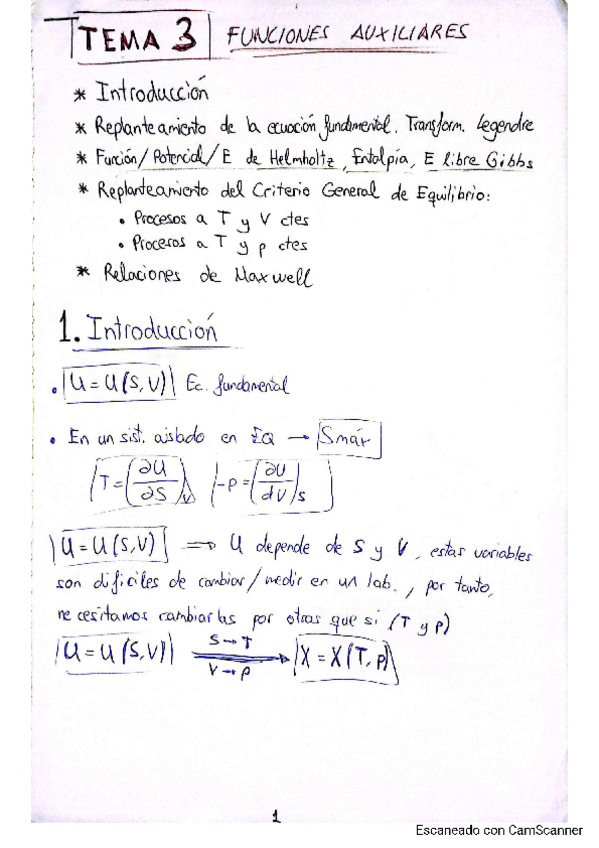 TEMA 3 FUNCIONES AUXILIARES
* Introducción
* Replanteamiento de la ecuación fundamental. Transform. Legendre
* Función/Potencial/E de Helmholtz, Entalpía, E libre Gibbs
* Replanteamiento del Criterio General de Equilibrio:
• Procesos a T y V ctes
• Procesos a T y p ctes
* Relaciones de Maxwell
1. Introducción
• U = U(S,V) Ec. fundamental
• En un sist. aislado en EQ → Smáx
T = (∂U/∂S)V -p = (∂U/dV)S
U = U(S,V) ⇒ U depende de S y V, estas variables
son difíciles de cambiar/medir en un lab., por tanto,
necesitamos cambiarlas por otras que sí (T y p)
U = U(S,V) S→T V→p X = X(T,p)
1
Escaneado con CamScanner